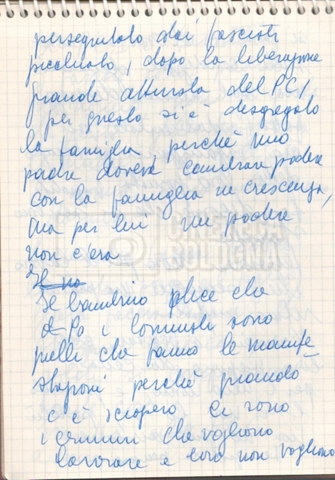 perseguitato dai fascisti
picchiato, dopo la liberazione
grande attivista del PCI,
per questo si è disgregata
la famiglia, perché mio
padre doveva cambiare podere
con la famiglia in crescenza,
ma per lui un podere
non c'era
Il bambino dice che
i comunisti sono
quelli che fanno le manife-
stazioni perché quando
c'è sciopero ci sono
i crumiri che vogliono
lavorare e loro non vogliono
BOLOGNA